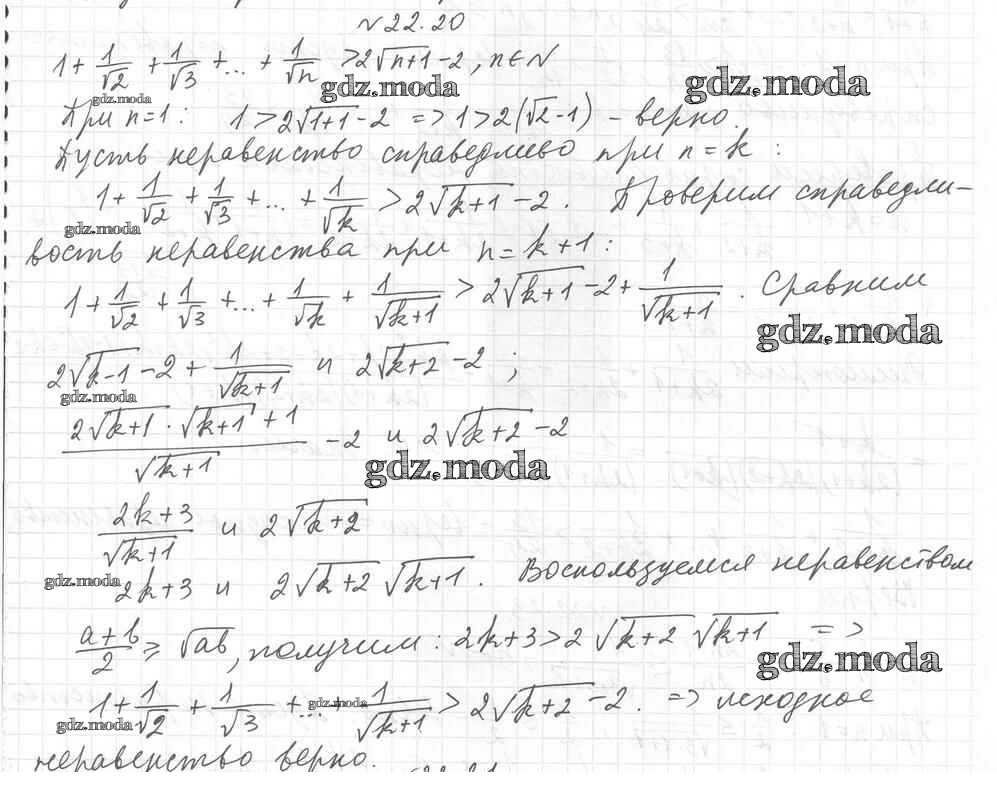 № 22.20
1 + 1/√2 + 1/√3 + ... + 1/√n > 2√(n+1) - 2, n ∈ N
gdz.moda gdz.moda gdz.moda
При n=1: 1 > 2√(1+1) - 2 => 1 > 2(√2 - 1) - верно.
Пусть неравенство справедливо при n = k :
1 + 1/√2 + 1/√3 + ... + 1/√k > 2√(k+1) - 2. Проверим справедли-
gdz.moda
вость неравенства при n = k+1 :
1 + 1/√2 + 1/√3 + ... + 1/√k + 1/√(k+1) > 2√(k+1) - 2 + 1/√(k+1). Сравним
gdz.moda
2√(k-1) - 2 + 1/√(k+1) и 2√(k+2) - 2 ;
gdz.moda
(2√(k+1) · √(k+1) + 1)/√(k+1) - 2 и 2√(k+2) - 2
gdz.moda
(2k+3)/√(k+1) и 2√(k+2)
gdz.moda
2k+3 и 2√(k+2) √(k+1). Воспользуемся неравенством
(a+b)/2 ≥ √ab, получим: 2k+3 > 2√(k+2) √(k+1) =>
gdz.moda
1 + 1/√2 + 1/√3 + ... + 1/√(k+1) > 2√(k+2) - 2. => исходное
gdz.moda gdz.moda
неравенство верно.